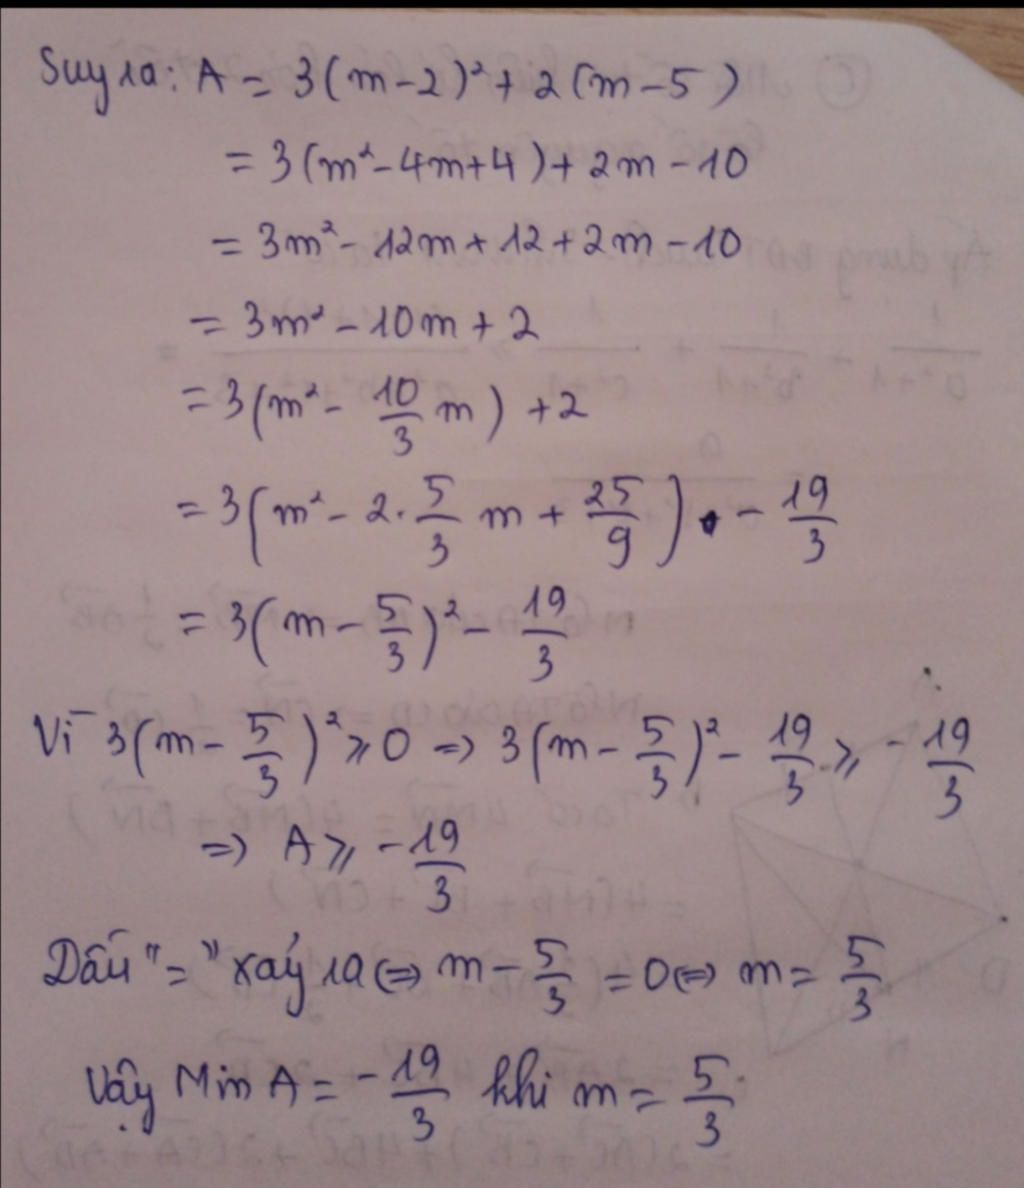 Suy ra: A = 3(m-2)² + 2(m-5)
= 3(m²-4m+4)+2m-10
= 3m²-12m+12+2m-10
= 3m²-10m+2
= 3(m² - 10/3 m) +2
= 3(m² - 2. 5/3 m + 25/9) - 19/3
= 3(m - 5/3)² - 19/3
Vì 3(m - 5/3)² ⩾ 0 => 3(m - 5/3)² - 19/3 ⩾ - 19/3
=> A ⩾ - 19/3
Dấu "=" xảy ra <=> m - 5/3 = 0 <=> m = 5/3
Vậy Min A = - 19/3 khi m = 5/3